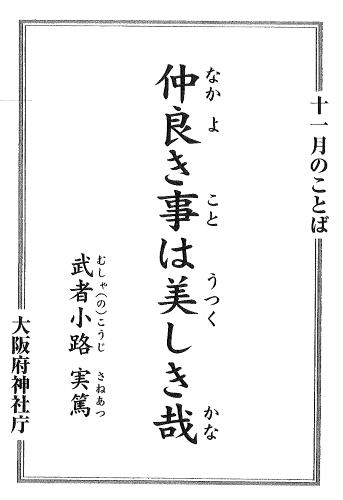 十一月のことば
なか よ こと うつく かな
仲良き事は美しき哉
むしゃ(の)こうじ さねあつ
武者小路 実篤
大阪府神社庁